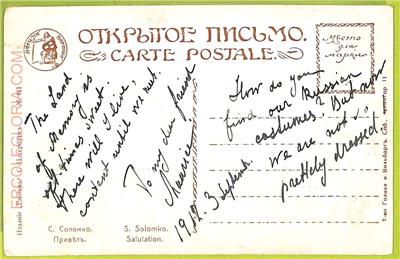 ОТКРЫТОЕ ПИСЬМО.
CARTE POSTALE.
Мѣсто
для
марки
The Land
of Memory is
oft times sweet
there will I live,
content until we meet.
To my dear friend
Maurice
1912. 3 Septemb.
How do you
find our Russian
costumes? But now
we are not so
prettely dressed
С. Соломко.
Привѣтъ.
S. Solomko.
Salutation.
Т-во Голике и Вильборгъ. Спб.
EBCOLEGLORIA.COM